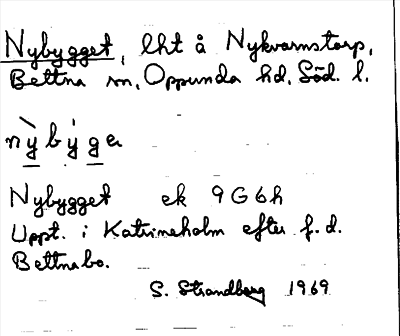 Nybygget, lht å Nykvarnstorp,
Bettna sn, Oppunda hd, Söd. l.
nỳbýge
Nybygget ek 9G6h
Uppt. i Katrineholm efter f.d.
Bettnabo.
S. Strandberg 1969